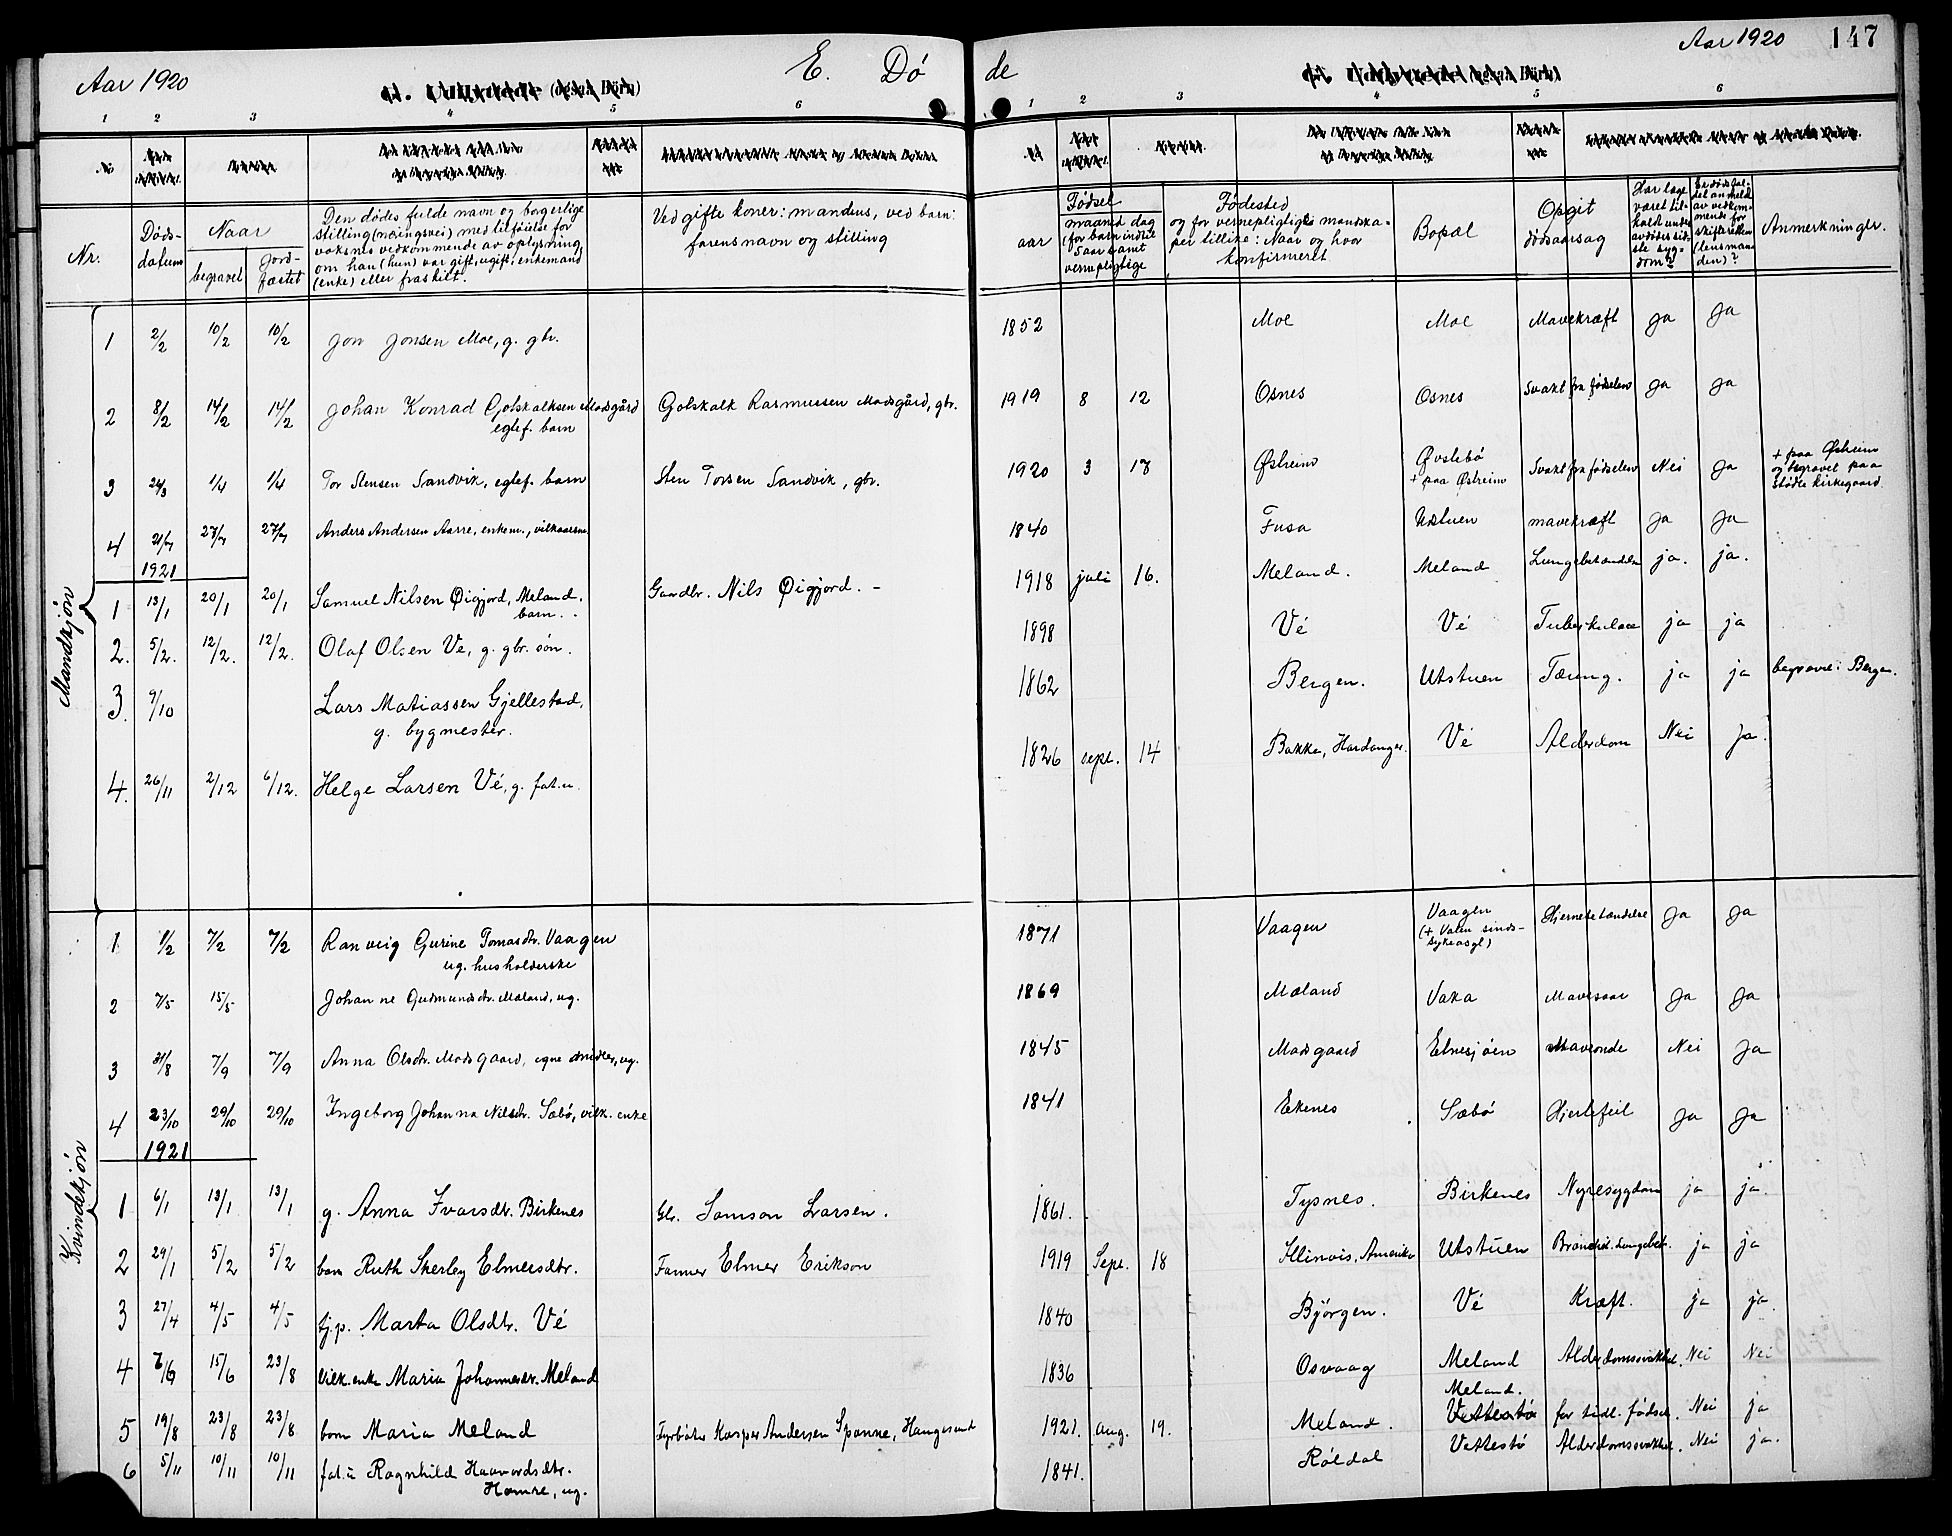 Aar 1920
E. Dø
de
Aar 1920 147
(også Børn)
(også Børn)
1 2 3 4 5 6
1 2 3 4 5 6
Nr.
Døds-
datum
Naar
begravet
jord-
fæstet
Den dødes fulde navn og borgerlige
stilling (næringsvei) med tilføielse for
voksnes vedkommende av oplysning,
om han (hun) var gift, ugift, enkemand
(enke) eller fraskilt.
Ved gifte koner: mandens, ved barn:
farens navn og stilling
Fødsel
aar
maaned dag
(for barn indtil
5 aar samt
vernepligtige
Fødested
og for vernepligtige mandska-
per tillike: Naar og hvor
konfirmeret
Bopæl
Opgit
dødsaarsag
Har læge
været til-
kaldt under
avdødes sid-
ste syg-
dom?
Er dødsfal-
det anmeldt
av vedkom-
mende for
skifteretten
(lensman-
den)?
Anmerkninger.
Mandkjøn
1 2/2 10/2 10/2 Jon Jonsen Moe, g. gbr. 1852 Moe Moe Mavekræft Ja Ja
2 8/2 14/2 14/2 Johan Konrad Gotskalksen Madsgård Gotskalk Rasmussen Madsgård, gbr. 1919 8 12 Osnes Osnes Svakt fra fødselen Ja Ja
egtef. barn
3 24/3 1/4 1/4 Tor Stensen Sandvik, egtef. barn Sten Torsen Sandvik, gbr. 1920 3 17 Østreim Øvstebø Svakt fra fødselen Nei Ja + paa Østreim
+ paa Østreim
og begravet paa
Stødle kirkegaard.
4 21/7 27/7 27/7 Anders Andersen Aarre, enkem., vilkaarsm. 1840 Fusa Utstuen mavekræft Ja Ja
1921
1 13/1 20/1 20/1 Samuel Nilsen Øigjord, Meland. Gaardbr. Nils Øigjord. - 1918 juli 16. Meland. Meland Lungebetændelse ja. ja.
barn.
2. 5/2. 12/2. 12/2. Olaf Olsen Ve, g. gbr. søn. 1898 Vé Vé Tuberkulose ja ja
3. 9/10 Lars Matiassen Gjellestad, 1862 Bergen. Utstuen Tæring. ja ja begravet i Bergen.
g. bygmester.
4. 26/11 2/12 6/12. Helge Larsen Vé, g. fat.u. 1826 sept. 14 Bakke, Hardanger. Vé Alderdom Nei Ja.
Kvindekjøn
1 1/2 7/2 7/2 Ranveig Gurine Tomasdtr. Vaagen 1871 Vaagen Vaagen Hjernebetændelse Ja Ja
ug. husholderske
(+ Valen sinds-
sykeasyl)
2 7/5 15/5 Johanne Gudmundsdtr. Mæland, ug. 1869 Mæland Vaka Mavesaar Ja Ja
3 31/8 7/9 7/9 Anna Olsdtr. Madsgaard, egne midler, ug. 1845 Madsgaard Etnesjøen Maveonde Nei Ja
4 23/10 29/10 29/10 Ingeborg Johanna Nilsdtr. Sæbø, vilk. enke 1841 Ekenes Sæbø Hjertefeil Ja Ja
1921
1 6/1 13/1 13/1 g. Anna Ivarsdtr. Birkenes Gbr. Samson Larsen. 1861. Tysnes. Birkenes Nyresygdom ja ja.
2 29/1 5/2 5/2 barn Ruth Sherley Elmersdtr. Farmer Elmer Erikson 1919 Sept. 18 Illinois, Amerika Utstuen Bronchit. Lungebet. ja ja
3 27/4 4/5 4/5 tj.p. Marta Olsdtr. Vé 1840 Bjørgen. Vé Kræft. ja ja.
4 7/6 15/6 23/8 Vilk. enke Maria Johannesdtr. Meland 1836 Osvaag Meland Alderdomssvakhet. Nei Nei
Meland.
5 19/8 23/8 23/8 barn Maria Meland Fyrbøter Kasper Andersen Spanne, Haugesund 1921. aug. 19. Meland. Vettestø for tidl. fødsel. Nei ja
6 5/11 10/11 10/11 fat.u. Ragnhild Haavardsdtr. 1841. Røldal Vettestø Alderdomssvakhet. Nei ja.
Hamre, ug.